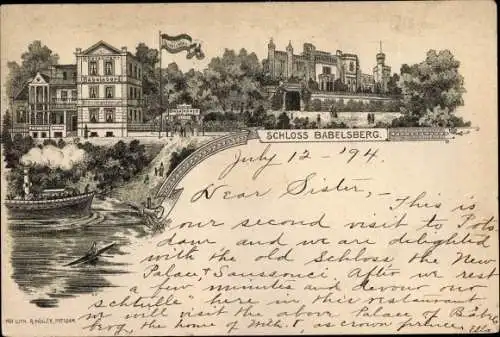 SCHLOSS BABELSBERG.
July 12 - '94.
Dear Sister, - This is
our second visit to Pots
dam and we are delighted
with the old Schloss the New
Palace, & Sanssouci. After we rest
a few minutes and devour our
"schtulle" here in this restaurant
we will visit the above Palace of Babels
berg, the home of Wilh. I, as crown prince.
POTSDAM.